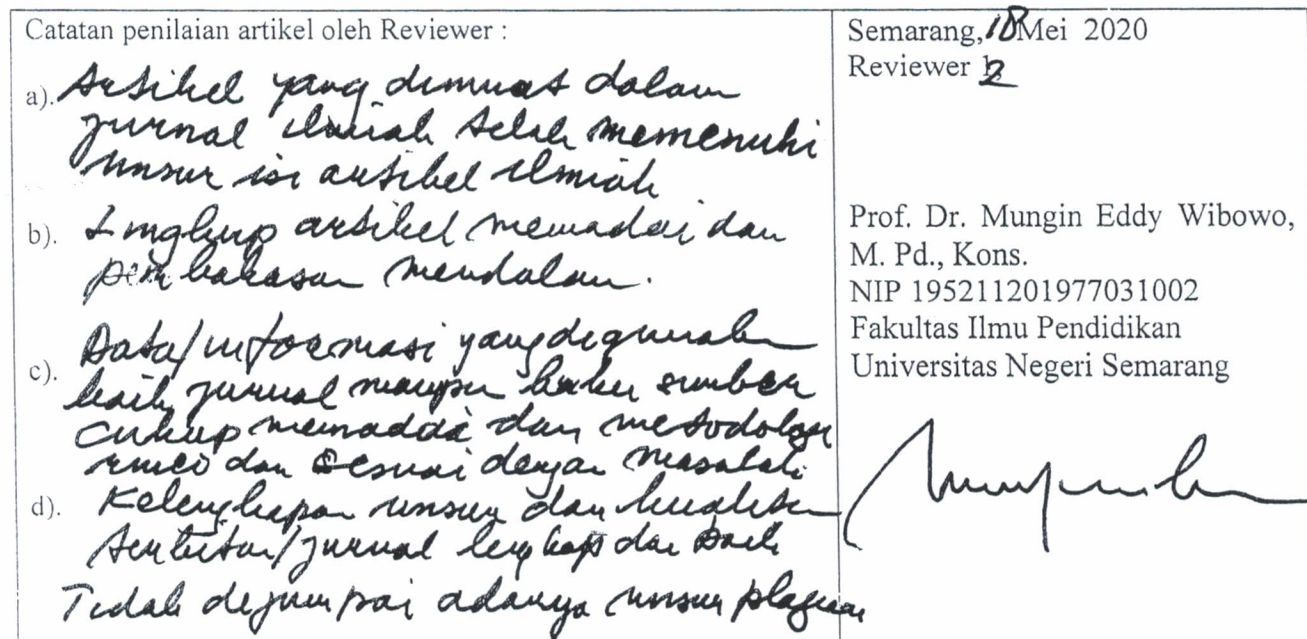 Catatan penilaian artikel oleh Reviewer :
a). Artikel yang dimuat dalam
jurnal ilmiah telah memenuhi
unsur isi artikel ilmiah
b). Lingkup artikel memadai dan
pembahasan mendalam.
c). Data/informasi yang digunakan
baik jurnal maupun buku sumber
cukup memadai dan metodologi
rinci dan sesuai dengan masalah
d). Kelengkapan unsur dan kualitas
terbitan/jurnal lengkap dan baik
Tidak dijumpai adanya unsur plagiasi
Semarang, 18 Mei 2020
Reviewer 2
Prof. Dr. Mungin Eddy Wibowo,
M. Pd., Kons.
NIP 195211201977031002
Fakultas Ilmu Pendidikan
Universitas Negeri Semarang